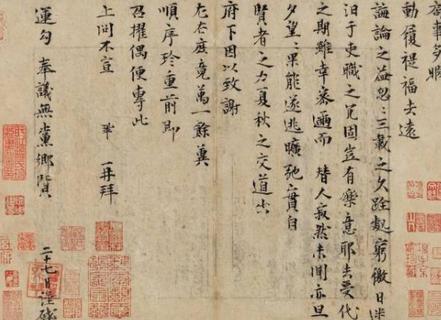 局事多暇
動履禔福去遠
誨論之益忽忽三載之久跧處窮徼日迷
汩于吏職之冗固豈有樂意耶去受代
之期雖幸密邇而替人寂然未聞亦旦
夕望望果能遂逃曠弛實自
賢者之力夏秋之交道出
府下因以致謝
左右庶竟萬一餘冀
順序珍重前即
召擢偶便專此
上問不宣 鞏再拜
運勾奉議無黨鄉賢 二十七日謹